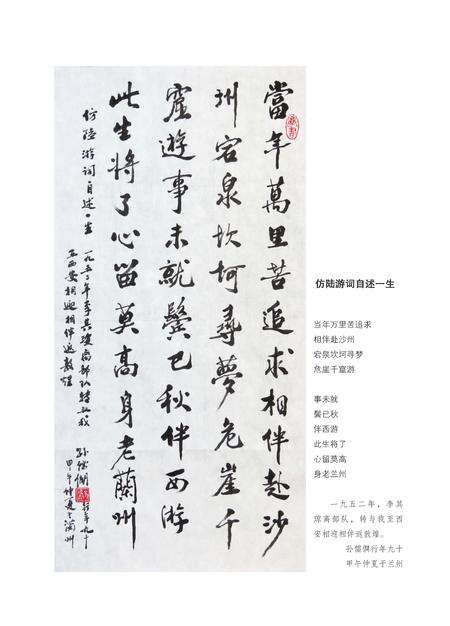 當年萬里苦追求相伴赴沙
州宕泉坎坷尋夢危崖千
窟遊事未就鬓已秋伴西游
此生将了心留莫高身老蘭州
仿陸游词自述一生 一九五二年李其瓊离部队转与我
至西安相迎相伴返敦煌
孙儒僩行年九十
甲午仲夏于蘭州
仿陆游词自述一生
当年万里苦追求
相伴赴沙州
宕泉坎坷寻梦
危崖千窟游
事未就
鬓已秋
伴西游
此生将了
心留莫高
身老兰州
一九五二年，李其
琼离部队，转与我至西
安相迎相伴返敦煌。
孙儒僩行年九十
甲午仲夏于兰州